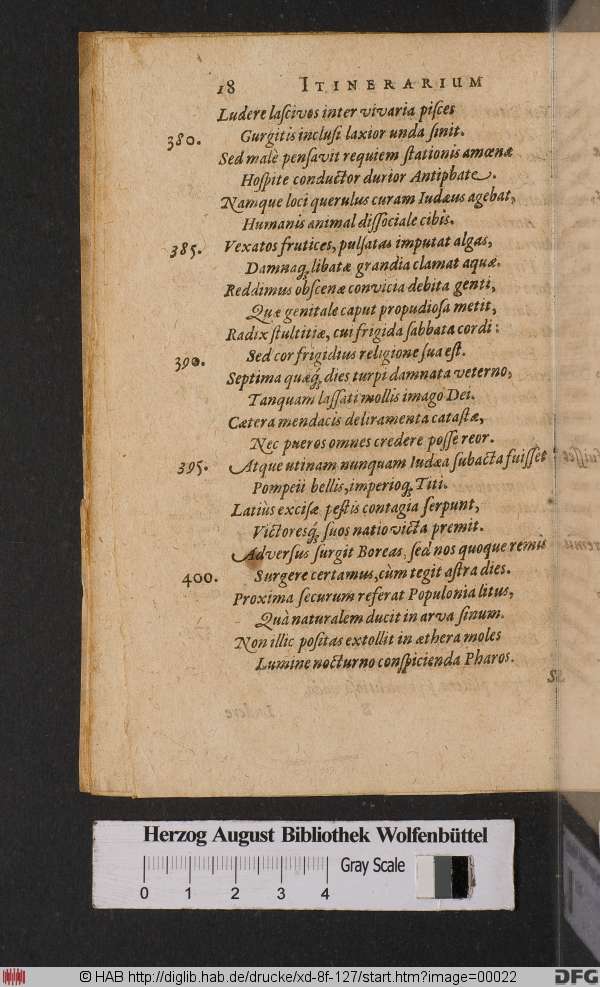 18 ITINERARIUM
Ludere laſcivos inter vivaria piſces
380. Gurgitis incluſi laxior unda ſinit.
Sed malè penſavit requiem ſtationis amœnæ
Hoſpite conductor durior Antiphate.
Namque loci querulus curam Iudæus agebat,
Humanis animal diſſociale cibis.
385. Vexatos frutices, pulſatas imputat algas,
Damnaq́; libatæ grandia clamat aquæ.
Reddimus obſcenæ convicia debita genti,
Quæ genitale caput propudioſa metit,
Radix ſtultitiæ, cui frigida ſabbata cordi:
390. Sed cor frigidius religione ſua eſt.
Septima quæq́; dies turpi damnata veterno,
Tanquam laſſati mollis imago Dei.
Cætera mendacis deliramenta cataſtæ,
Nec pueros omnes credere poſſe reor.
395. Atque utinam nunquam Iudæa ſubacta fuiſſet
Pompeii bellis, imperioq́; Titi.
Latiùs exciſæ peſtis contagia ſerpunt,
Victoresq́; ſuos natio victa premit.
Adverſus ſurgit Boreas, ſed nos quoque remis
400. Surgere certamus, cùm tegit aſtra dies.
Proxima ſecurum referat Populonia litus,
Quà naturalem ducit in arva ſinum.
Non illic poſitas extollit in æthera moles
Lumine nocturno conſpicienda Pharos.
Herzog August Bibliothek Wolfenbüttel
Gray Scale
0 1 2 3 4
© HAB http://diglib.hab.de/drucke/xd-8f-127/start.htm?image=00022
DFG